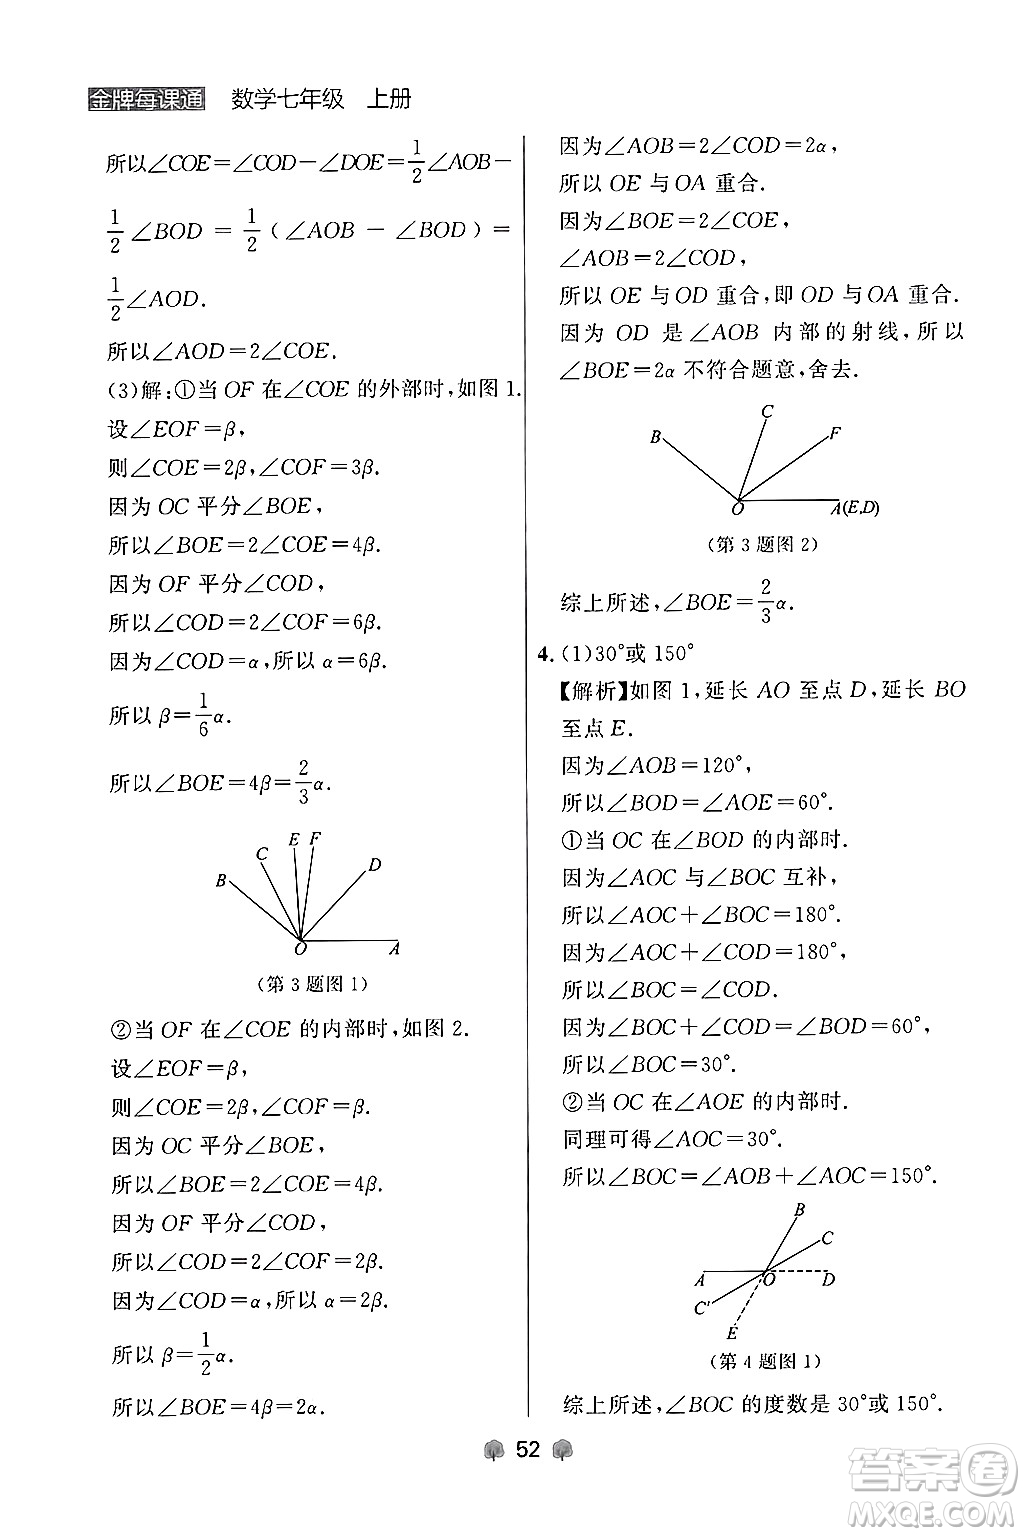 金牌每课通 数学七年级 上册
所以∠COE=∠COD-∠DOE=1/2∠AOB-
1/2∠BOD=1/2(∠AOB-∠BOD)=
1/2∠AOD.
所以∠AOD=2∠COE.
(3)解:①当 OF 在∠COE 的外部时,如图 1.
设∠EOF=β,
则∠COE=2β,∠COF=3β.
因为 OC 平分∠BOE,
所以∠BOE=2∠COE=4β.
因为 OF 平分∠COD,
所以∠COD=2∠COF=6β.
因为∠COD=α,所以 α=6β.
所以 β=1/6α.
所以∠BOE=4β=2/3α.
B C E F D
O A
(第 3 题图 1)
②当 OF 在∠COE 的内部时,如图 2.
设∠EOF=β,
则∠COE=2β,∠COF=β.
因为 OC 平分∠BOE,
所以∠BOE=2∠COE=4β.
因为 OF 平分∠COD,
所以∠COD=2∠COF=2β.
因为∠COD=α,所以 α=2β.
所以 β=1/2α.
所以∠BOE=4β=2α.
因为∠AOB=2∠COD=2α,
所以 OE 与 OA 重合.
因为∠BOE=2∠COE,
∠AOB=2∠COD,
所以 OE 与 OD 重合,即 OD 与 OA 重合.
因为 OD 是∠AOB 内部的射线,所以
∠BOE=2α 不符合题意,舍去.
B C F
O A(E,D)
(第 3 题图 2)
综上所述,∠BOE=2/3α.
4.(1)30°或 150°
【解析】如图 1,延长 AO 至点 D,延长 BO
至点 E.
因为∠AOB=120°,
所以∠BOD=∠AOE=60°.
①当 OC 在∠BOD 的内部时.
因为∠AOC 与∠BOC 互补,
所以∠AOC+∠BOC=180°.
因为∠AOC+∠COD=180°,
所以∠BOC=∠COD.
因为∠BOC+∠COD=∠BOD=60°,
所以∠BOC=30°.
②当 OC 在∠AOE 的内部时.
同理可得∠AOC=30°.
所以∠BOC=∠AOB+∠AOC=150°.
B
C
A O D
C'
E
(第 4 题图 1)
综上所述,∠BOC 的度数是 30°或 150°.
52
答案圈
MXQE.COM